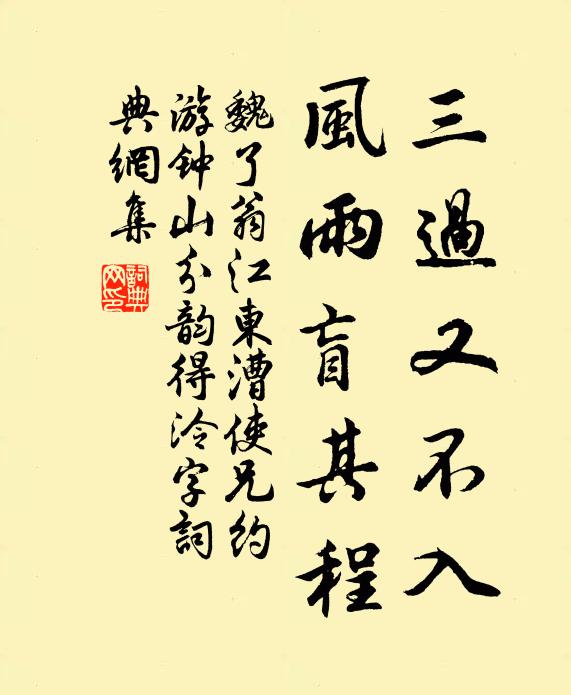 三過又不入
風雨盲其程
魏了翁江東漕使兄約
游钟山分韵得泠字詞
典網集
詞典網印